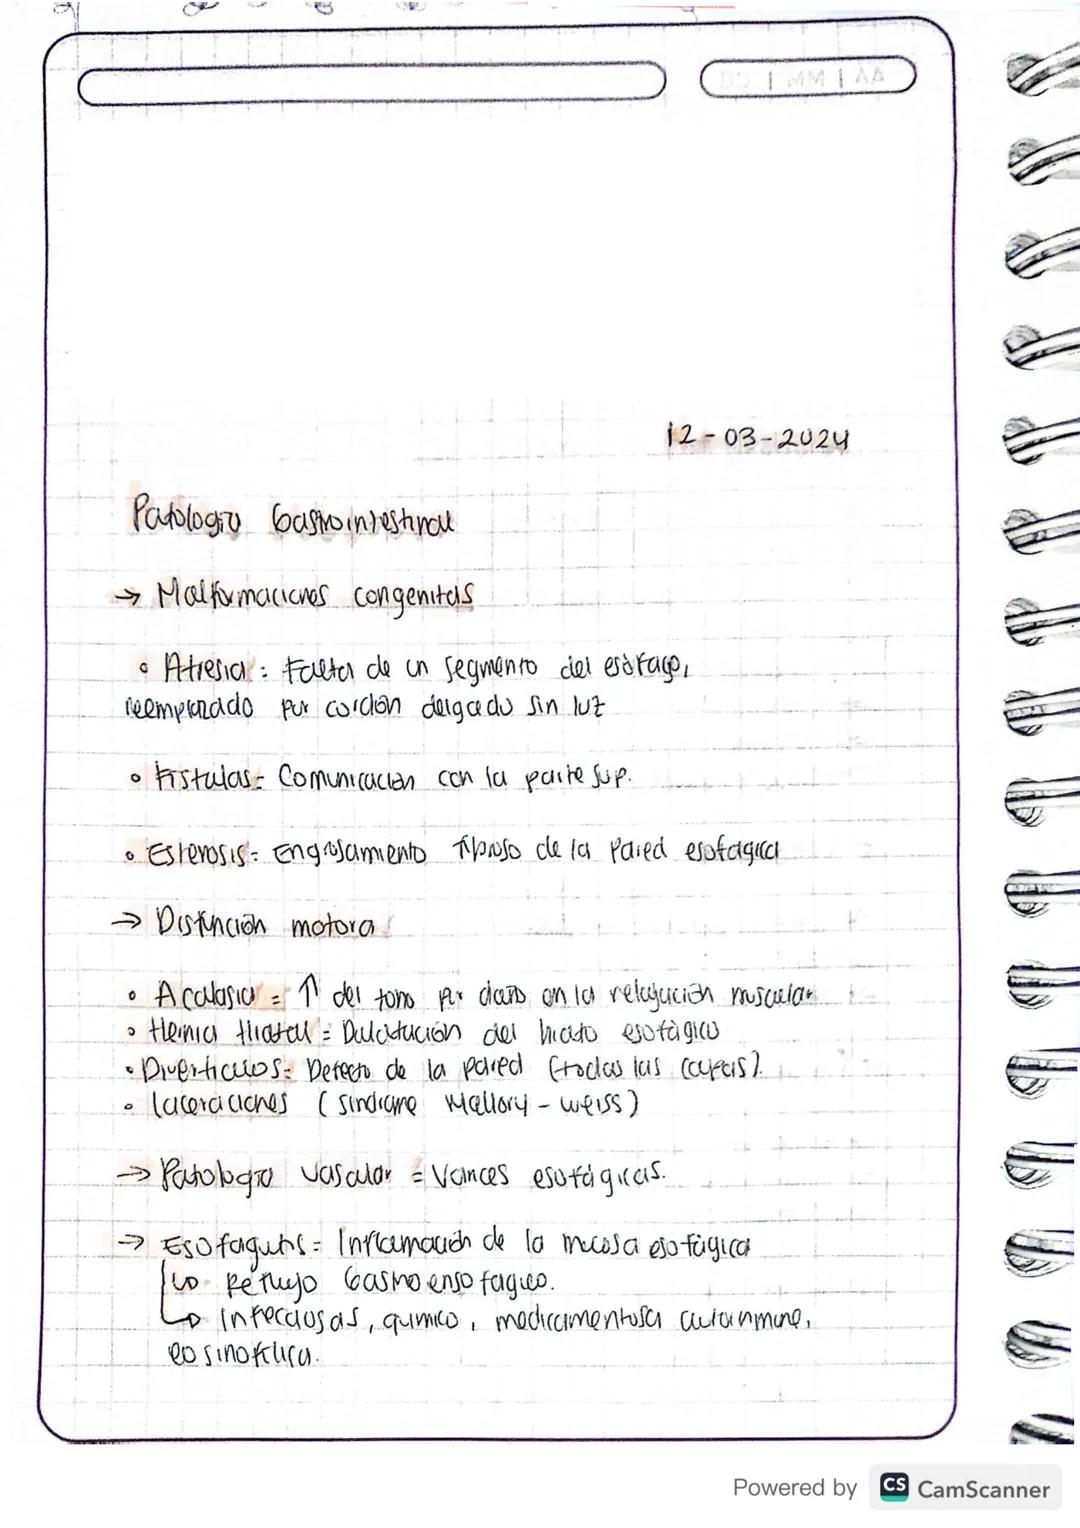 DD | MM | AA
12-03-2024
Patología Gastrointestinal
→ Malformaciones congenitas
◦ Atresia: Falta de un segmento del esófago,
reemplazado por cordón delgado sin luz
◦ Fistulas= Comunicación con la parte sup.
◦ Estenosis= Engrosamiento fibroso de la pared esofagica
→ Disfunción motora
◦ Acalasia = ↑ del tono por daño en la relajación muscular
◦ Hernia Hiatal = Dilatación del hiato esofágico
• Diverticulos= Defecto de la pared (todas las capas).
◦ laceraciones (sindrome Mallory-weiss)
→ Patología vascular = Varices esofágicas.
→ Esofagitis= Inflamación de la mucosa esofágica
↳ Reflujo Gastroensofagico.
↳ Infecciosas, quimico, medicamentosa autoinmune,
eosinofilica.
Powered by CS CamScanner